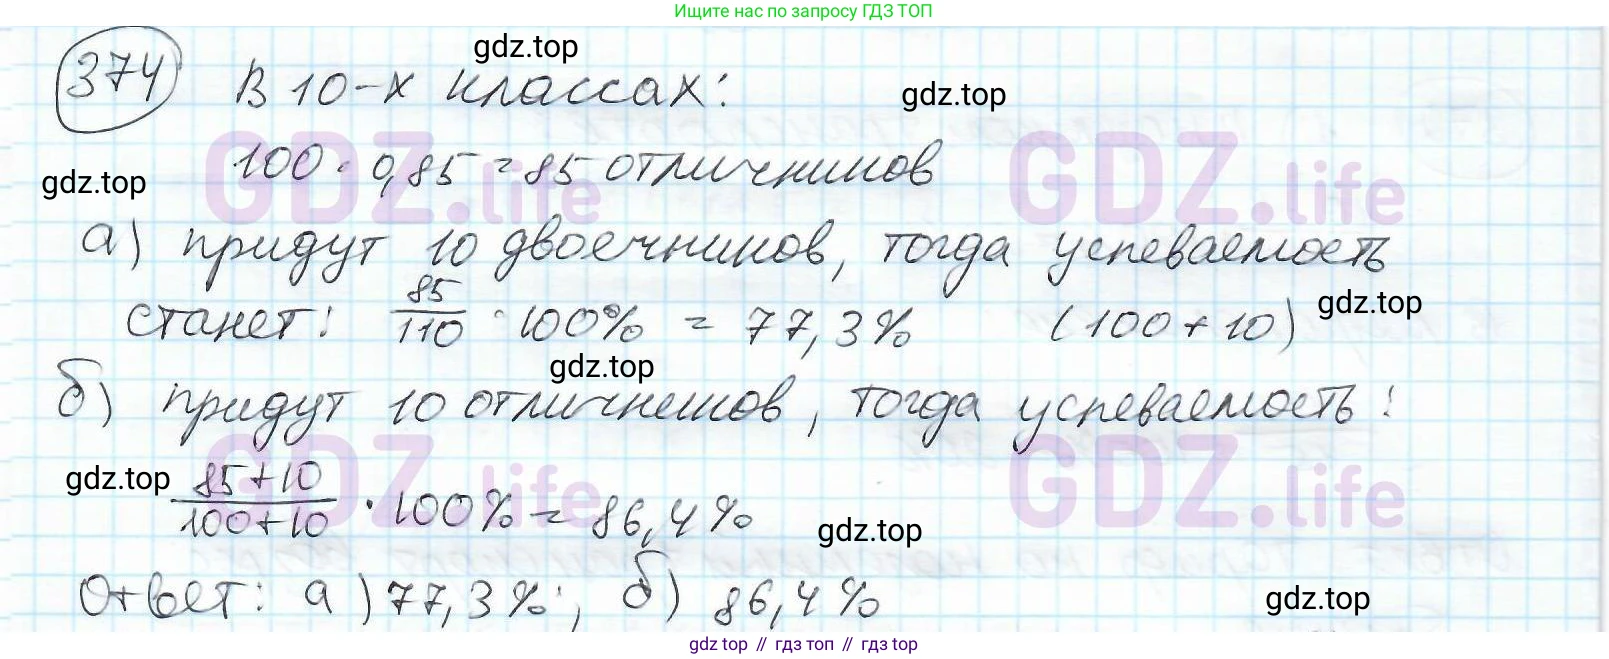 Ищите нас по запросу ГДЗ ТОП
gdz.top
374 В 10-х классах:
gdz.top
100 · 0,85 = 85 отличников
gdz.top
GDZ.life GDZ.life
а) придут 10 двоечников, тогда успеваемость
станет: 85/110 · 100% = 77,3% (100+10)
gdz.top
gdz.top
б) придут 10 отличников, тогда успеваемость:
GDZ.life GDZ.life
gdz.top
85+10/100+10 · 100% = 86,4%
gdz.top
Ответ: а) 77,3%; б) 86,4%
gdz.top
gdz top // гдз топ // гдз.top